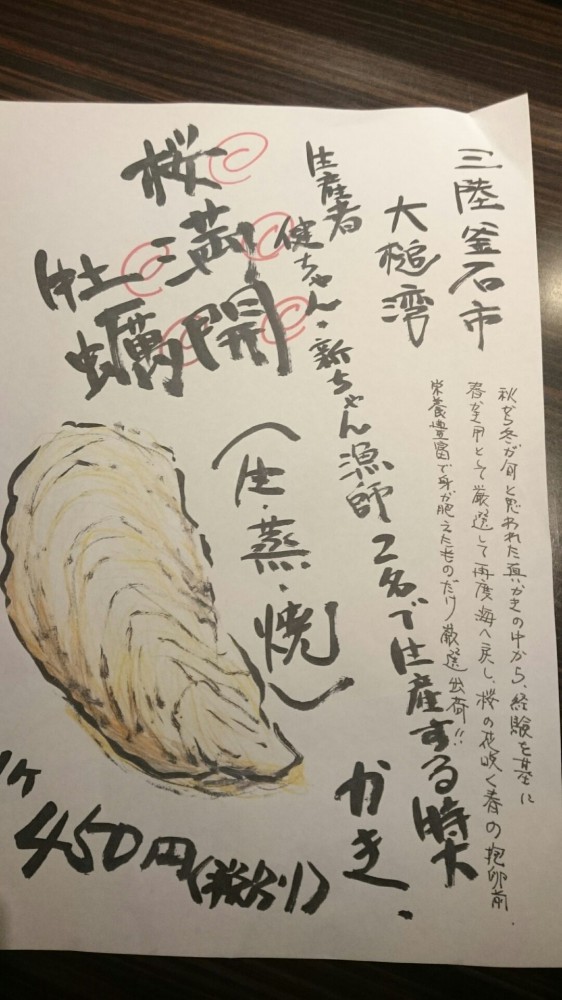 三陸釜石市
大槌湾
生産者
健ちゃん・新ちゃん漁師2名で生産する特大
かき。
秋から冬が旬と思われた真がきの中から、経験を基に
春かき用として厳選して再度海へ戻し、桜の花咲く春の抱卵前
栄養豊富で身が肥えたものだけ厳選出荷!!
桜
満
開
牡
蠣
(生・蒸・焼)
1ケ
450円(税別)